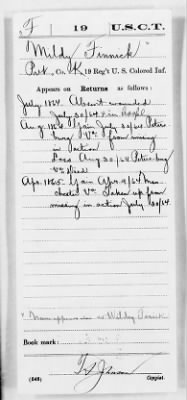 F 19 U.S.C.T.
Mildy Finnick
Pvt., Co. K, 19 Reg't U. S. Colored Inf.
Appears on Returns as follows:
July 1864 Absent wounded
July 30/64 in hospl
Aug 1864 Gain July 30/64 Peters-
burg Va. from missing
in action
Loss Aug 30/64 Petersburg
Va Died
Apr. 1865 Gain Apr. 9/64 Man-
chester Va. Taken up from
missing in action July 30/64.
Name appears also as
Book mark:
(546) Copyist.